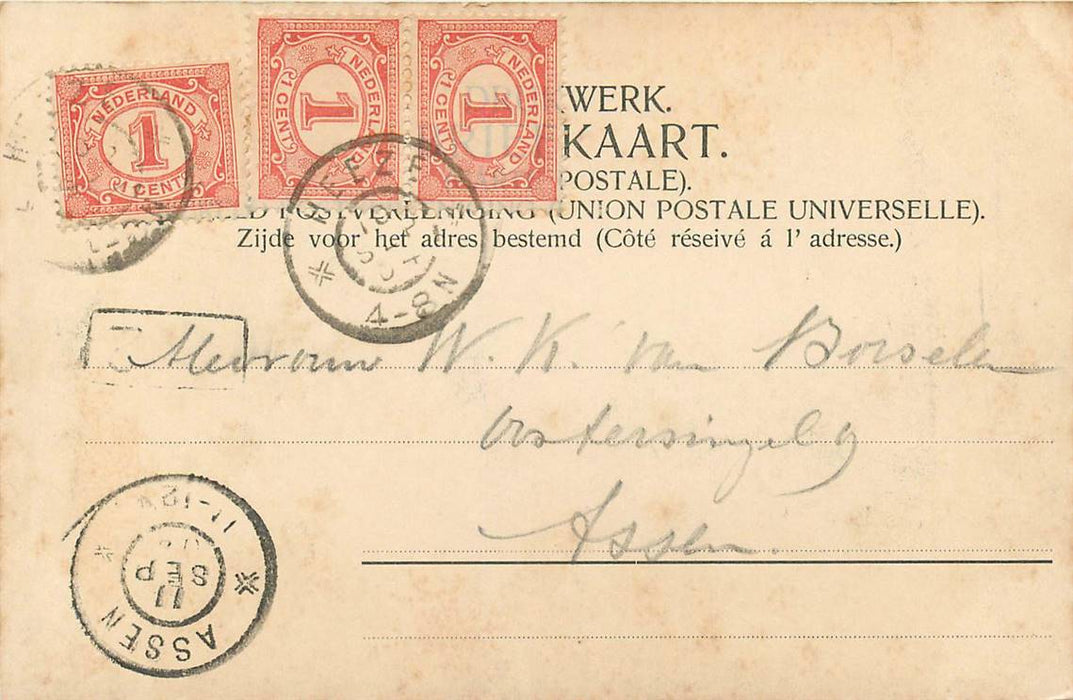 NEDERLAND
1
1 CENT
NEDERLAND
1
1 CENT
NEDERLAND
1
1 CENT
WERK.
KAART.
POSTALE).
POSTVEREENIGING (UNION POSTALE UNIVERSELLE).
Zijde voor het adres bestemd (Côté réseivé á l' adresse.)
HEEZE
4-8N
3
Mevrouw W. K. van Borselen
Oostersingel 9
Assen.
11-12V
11
SEP
ASSEN